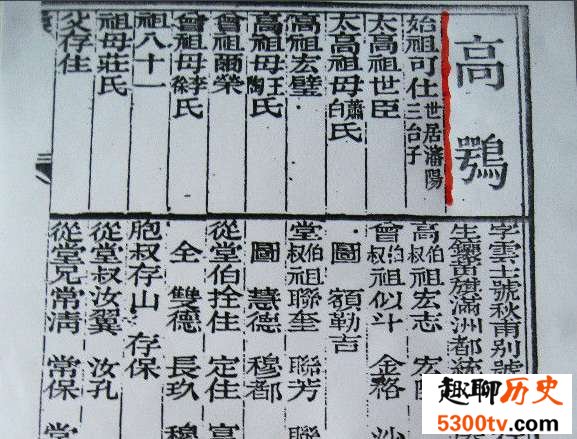 高鶚
始祖可住世居瀋陽三台子
太高祖世臣
太高祖母蕭白氏
高祖宏璧
高祖母王陶氏
曾祖爾榮
曾祖母李徐氏
祖八十一
祖母莊氏
父存住
字雲士號秋甫別號
生鑲黃旗滿洲都統
高伯叔祖宏志 宏
曾伯叔祖似斗 金
圖 額勒吉
堂伯叔祖聯奎 聯芳
圖 慧德 穆都
從堂伯拴住 定住
仝 雙德 長玖 穆
胞叔存山 存保
從堂叔汝翼 汝孔
從堂兄常清 常保 常
趣聊历史
5300tv.com